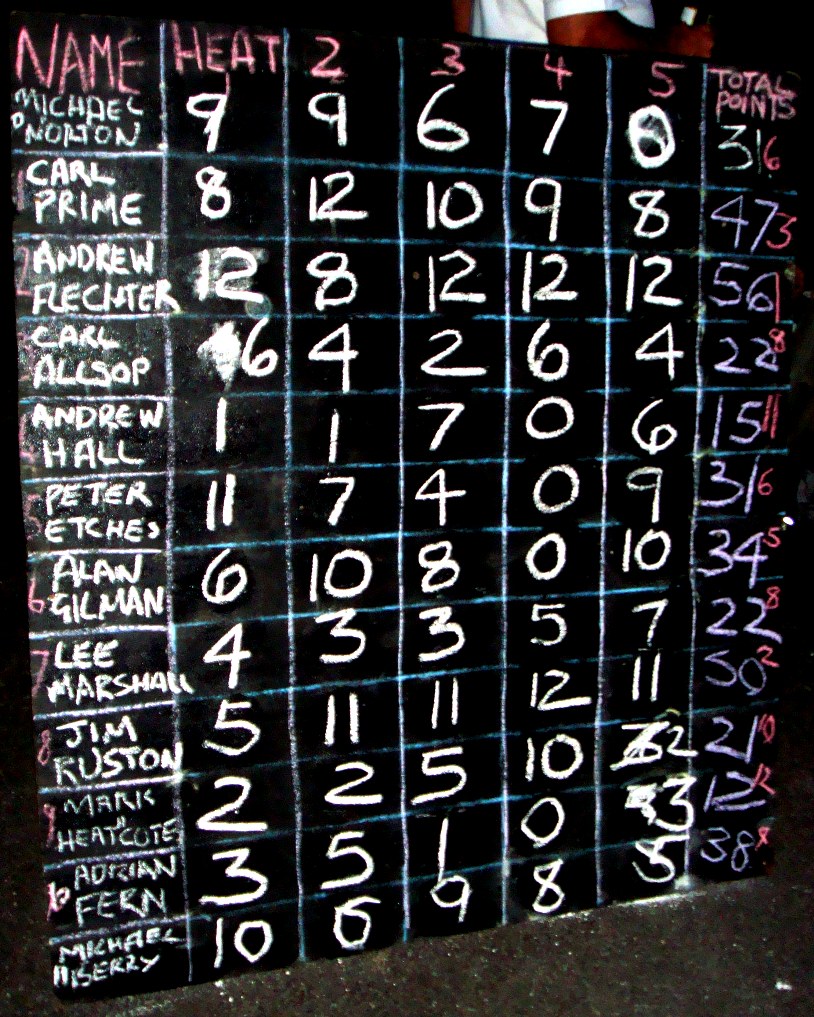 NAME HEAT 1 2 3 4 5 TOTAL POINTS
MICHAEL NORTON 9 9 6 7 0 31 6
CARL PRIME 8 12 10 9 8 47 3
ANDREW FLECHTER 12 8 12 12 12 56 1
CARL ALLSOP 6 4 2 6 4 22 8
ANDREW HALL 1 1 7 0 6 15 11
PETER ETCHES 11 7 4 0 9 31 6
6 ALAN GILMAN 6 10 8 0 10 34 5
7 LEE MARSHALL 4 3 3 5 7 22 8
8 JIM RUSTON 5 11 11 12 11 50 2
9 MARK HEATCOTE 2 2 5 10 2 21 10
10 ADRIAN FERN 3 5 1 0 3 12 12
MICHAEL 10 6 9 8 5 38